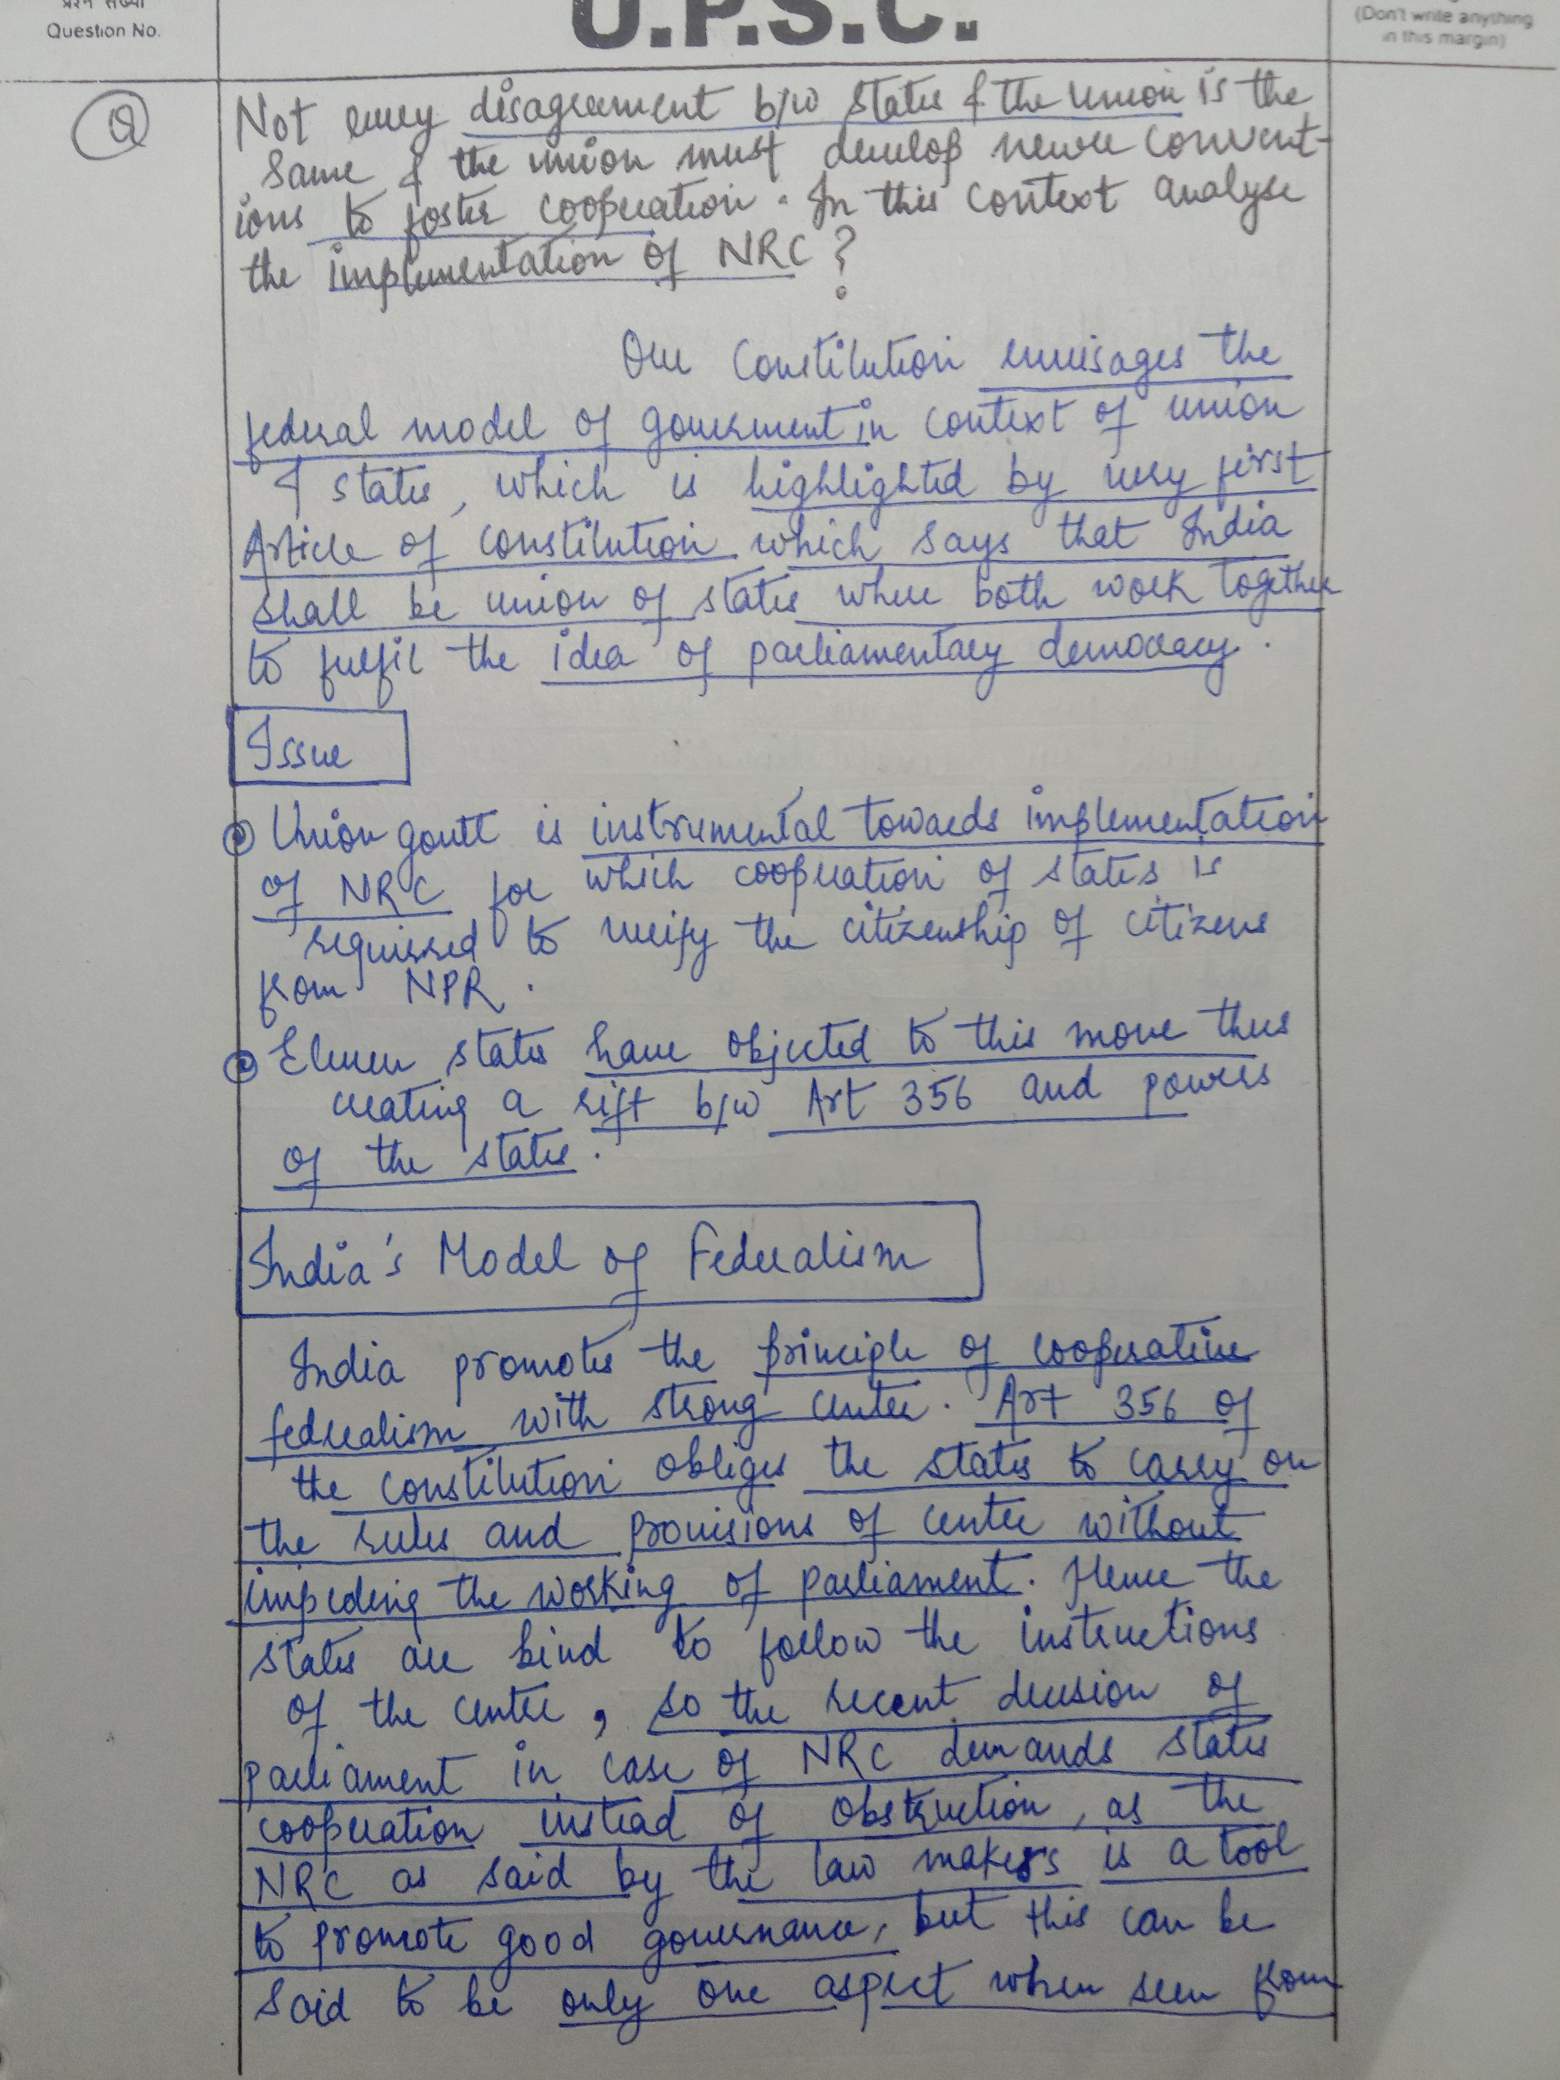 प्रश्न संख्या
Question No.
U.P.S.C.
(Don't write anything
in this margin)
Q
Not every disagreement b/w states & the union is the
same & the union must develop newer convent-
ions to foster cooperation. In this context analyse
the implementation of NRC?
Our Constitution envisages the
federal model of government in context of union
& states, which is highlighted by very first
Article of constitution which says that India
shall be union of states where both work together
to fulfil the idea of parliamentary democracy.
Issue
Union govtt is instrumental towards implementation
of NRC for which cooperation of states is
required to verify the citizenship of citizens
from NPR.
Eleven states have objected to this move thus
creating a rift b/w Art 356 and powers
of the states.
India's Model of Federalism
India promotes the principle of cooperative
federalism with strong center. Art 356 of
the constitution obliges the states to carry on
the rules and provisions of centre without
impeding the working of parliament. Hence the
states are bind to follow the instructions
of the centre, so the recent decision of
parliament in case of NRC demands states
cooperation instead of obstruction, as the
NRC as said by the law makers is a tool
to promote good governance, but this can be
said to be only one aspect when seen from